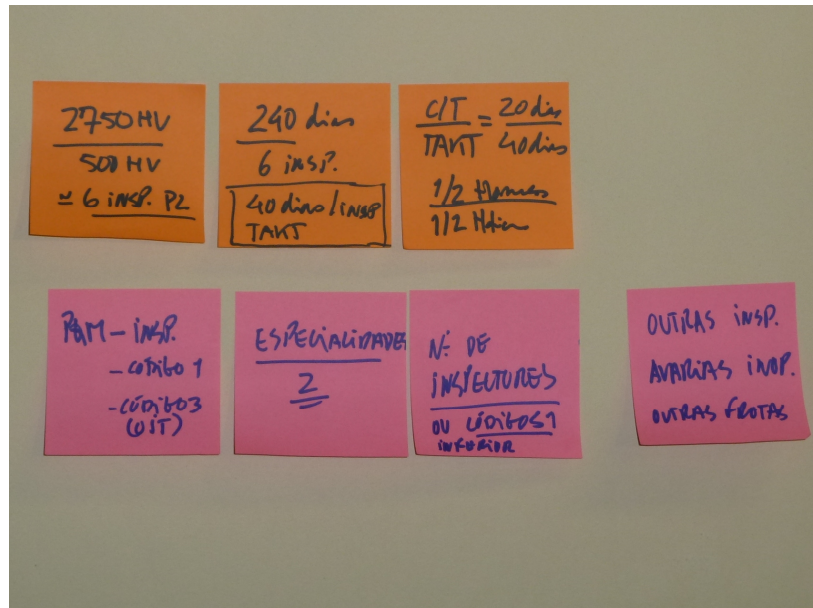 2750 HV
500 HV
≃ 6 insp. P2
240 dias
6 insp.
40 dias / insp
TAKT
C/T = 20 dias
TAKT 40 dias
1/2
1/2
- insp.
- código 1
- código 3
ESPECIALIDADES
2
Nº DE
INSPECTORES
OU CÓDIGOS 1
inferior
OUTRAS insp.
AVARIAS inop.
OUTRAS FROTAS